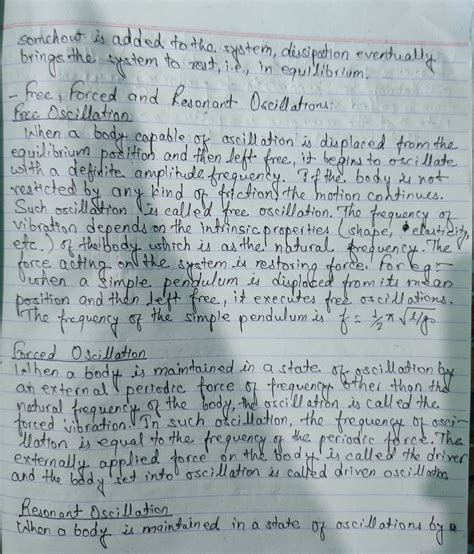 somehow is added to the system, dissipation eventually
brings the system to rest, i.e., in equilibrium.
- Free, Forced and Resonant Oscillations:
Free Oscillation
When a body capable of oscillation is displaced from the
equilibrium position and then left free, it begins to oscillate
with a definite amplitude, frequency. If the body is not
resticted by any kind of friction, the motion continues.
Such oscillation is called free oscillation. The frequency of
vibration depends on the intrinsic properties (shape, elasticity,
etc.) of the body which is as the natural frequency. The
force acting on the system is restoring force. For eg:-
when a simple pendulum is displaced from its mean
position and then left free, it executes free oscillations.
The frequency of the simple pendulum is f = 1/2 π √l/g
Forced Oscillation
When a body is maintained in a state of oscillation by
an external periodic force of frequency other than the
natural frequency of the body, the oscillation is called the
forced vibration. In such oscillation, the frequency of osci-
llation is equal to the frequency of the periodic force. The
externally applied force on the body is called the driver
and the body set into oscillation is called driven oscillation
Resonant Oscillation
When a body is maintained in a state of oscillations by a